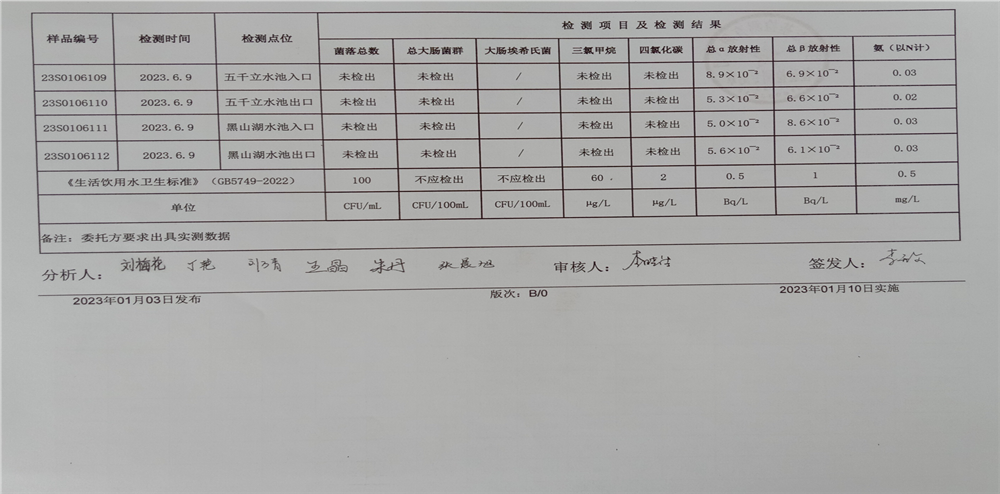 样品编号 检测时间 检测点位 检测项目及检测结果
菌落总数 总大肠菌群 大肠埃希氏菌 三氯甲烷 四氯化碳 总α放射性 总β放射性 氨（以N计）
23S0106109 2023.6.9 五千立水池入口 未检出 未检出 / 未检出 未检出 8.9×10⁻² 6.9×10⁻² 0.03
23S0106110 2023.6.9 五千立水池出口 未检出 未检出 / 未检出 未检出 5.3×10⁻² 6.6×10⁻² 0.02
23S0106111 2023.6.9 黑山湖水池入口 未检出 未检出 / 未检出 未检出 5.0×10⁻² 8.6×10⁻² 0.03
23S0106112 2023.6.9 黑山湖水池出口 未检出 未检出 / 未检出 未检出 5.6×10⁻² 6.1×10⁻² 0.03
《生活饮用水卫生标准》（GB5749-2022） 100 不应检出 不应检出 60 2 0.5 1 0.5
单位 CFU/mL CFU/100mL CFU/100mL μg/L μg/L Bq/L Bq/L mg/L
备注：委托方要求出具实测数据
分析人：刘梅花 丁艳 王晶 朱丹 审核人： 签发人：
2023年01月03日发布 版次：B/0 2023年01月10日实施